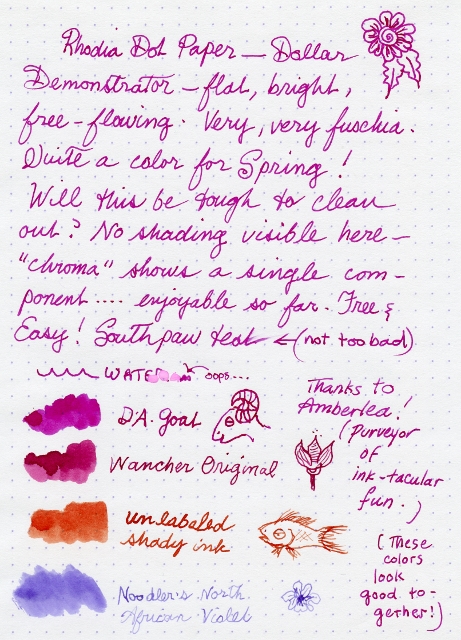 Rhodia Dot Paper — Dollar
Demonstrator - flat, bright,
free-flowing. Very, very fuschia.
Quite a color for Spring!
Will this be tough to clean
out? No shading visible here -
"chroma" shows a single com-
ponent.... enjoyable so far. Free &
Easy! Southpaw test ← (not too bad)
WATER oops...
D.A. goat
Wancher Original
unlabeled
shady ink
Noodler's North
African Violet
Thanks to
Amberlea!
(Purveyor
of
ink-tacular
fun.)
(These
colors
look
good to-
gether!)